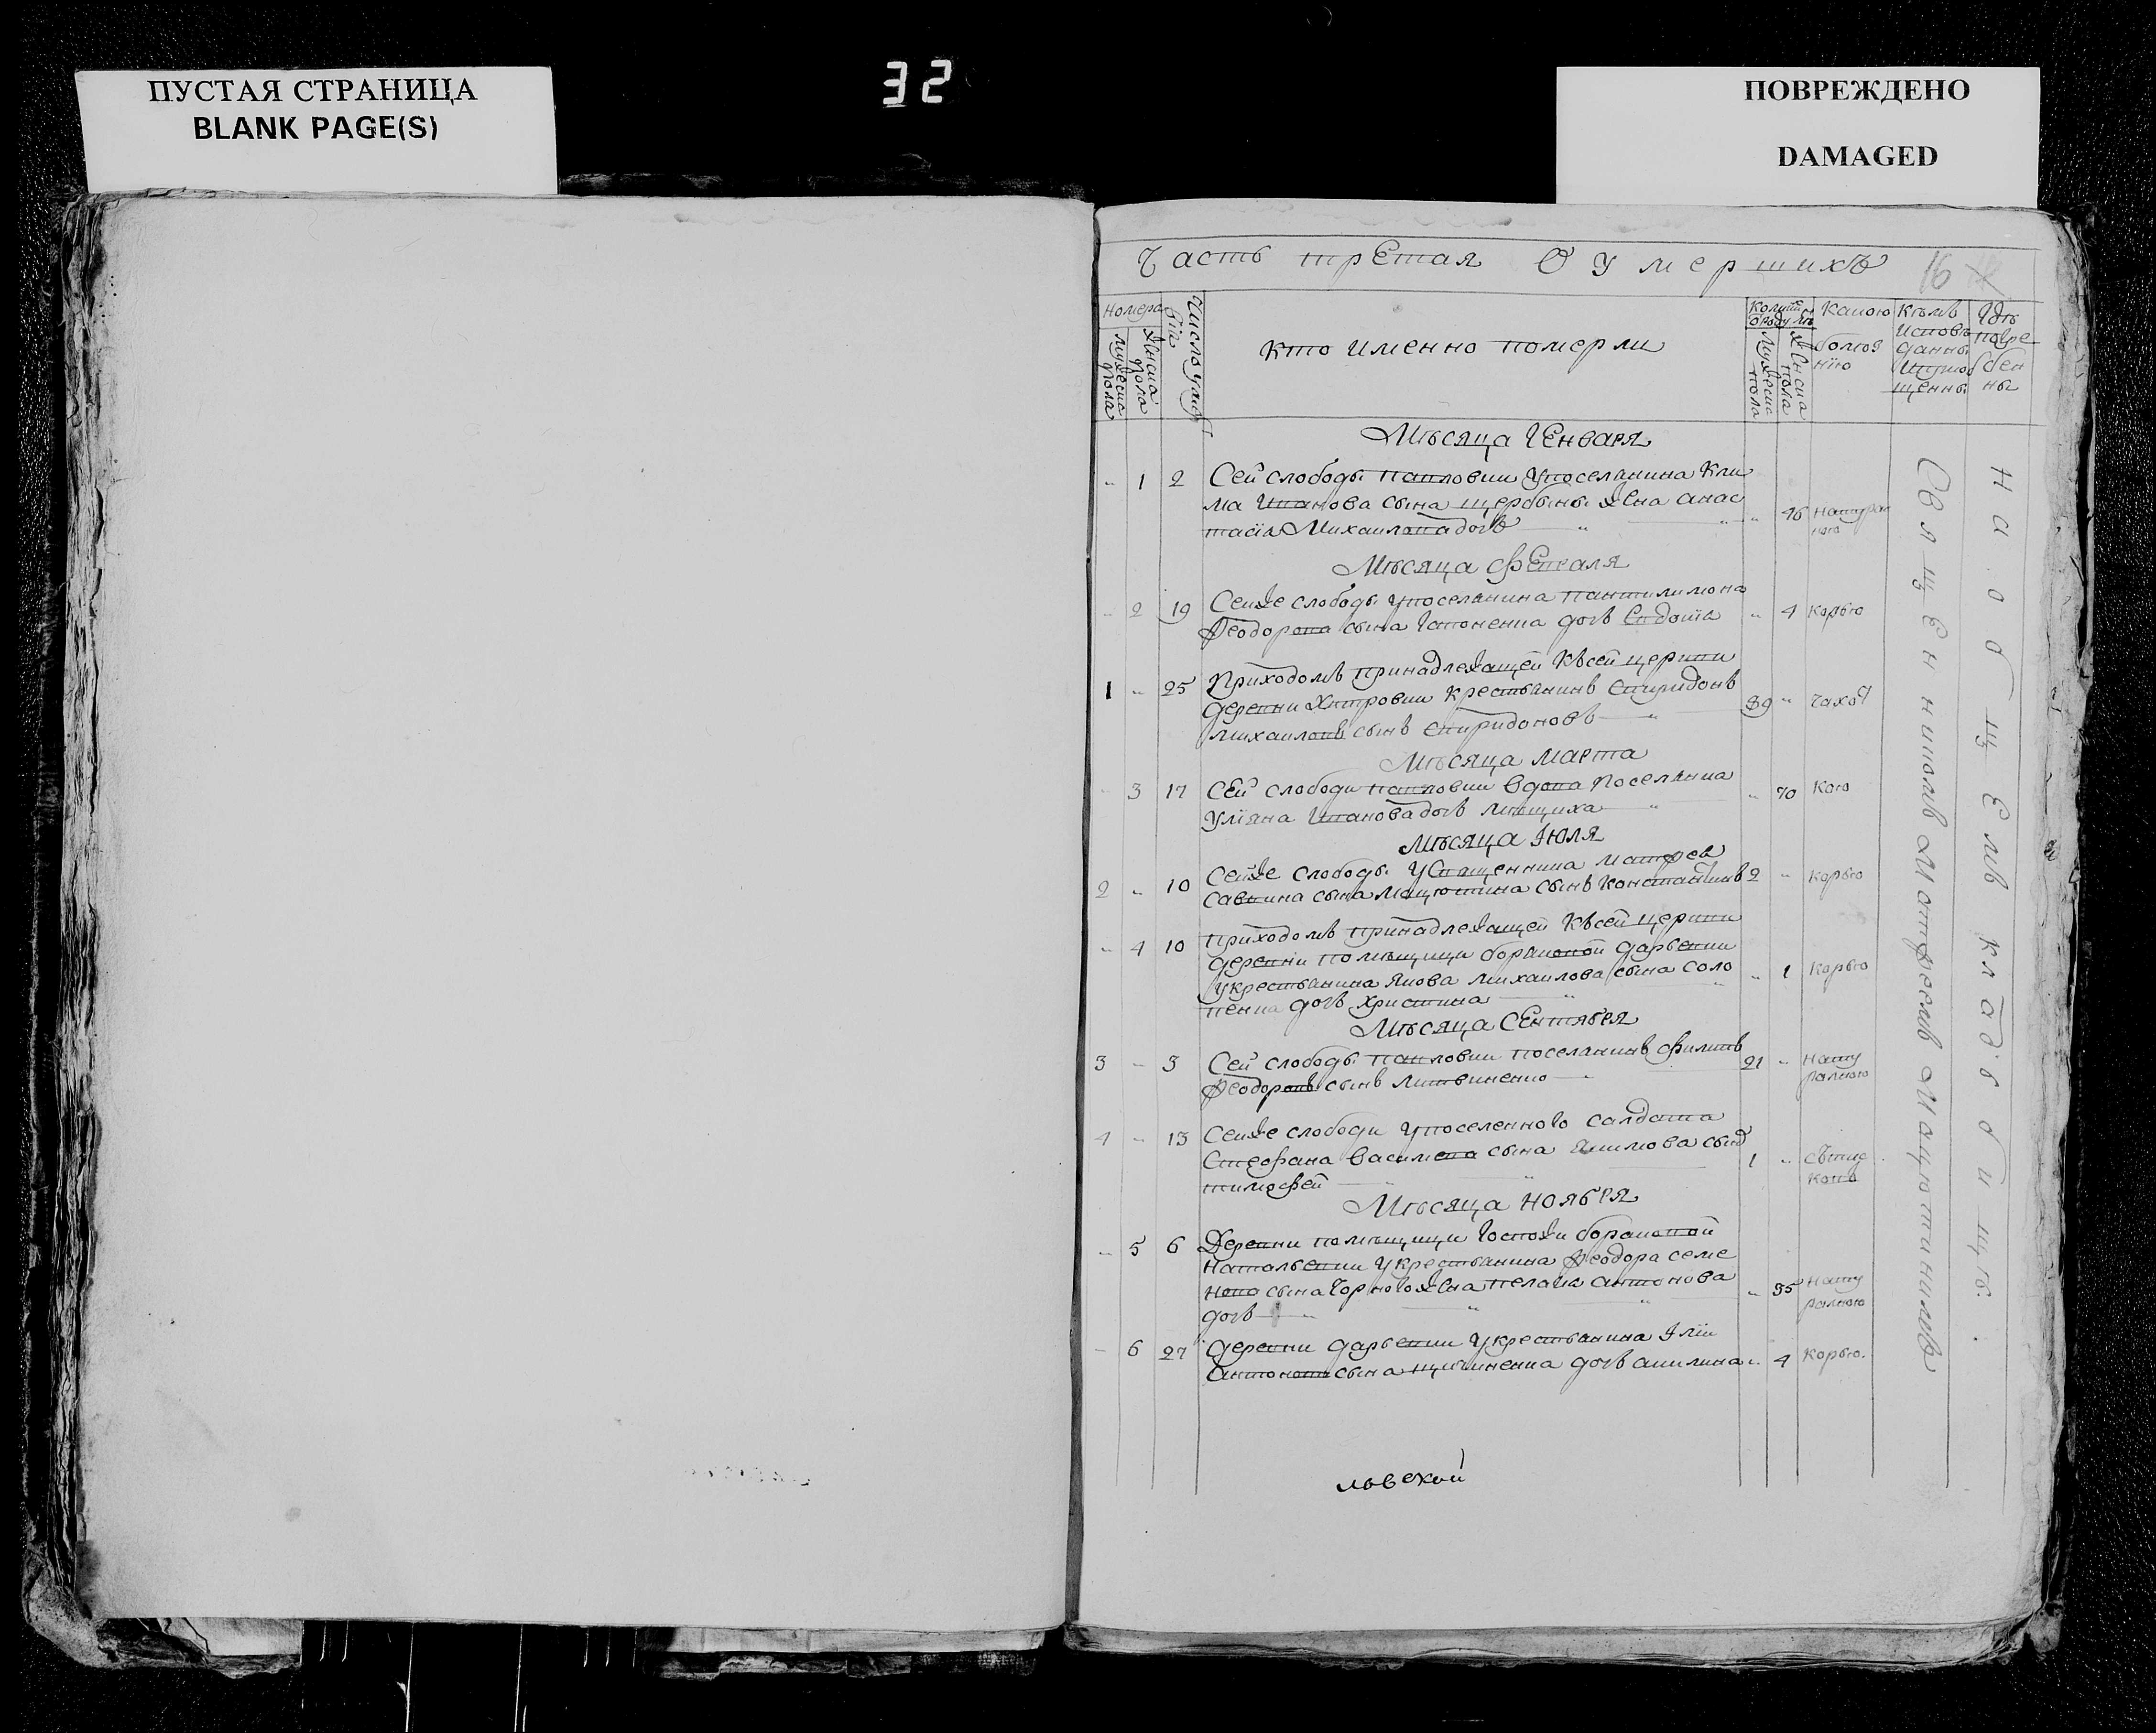 ПУСТАЯ СТРАНИЦА
BLANK PAGE(S)
32
ПОВРЕЖДЕНО
DAMAGED
Часть третая О умершихъ 16
Номера
мужеска пола
женска пола
Число умер
Кто именно померли
мужеска пола
женска пола
Какою болѣз нїю
Кѣмъ исповѣ данны
щенны
Гдѣ погре бен ны
Мѣсяца Генваря
1 2 Сей слободы павловки упоселянина Кли
ма Иванова сына щербыны жена анас
тасїя Михаилова дочь 46 натурал ною
Мѣсяца февраля
2 19 Сейже слободы упоселянина пантилимона
Феодорова сына дочь Евдокїа 4 корью
1 25 Приходомъ принадлежащей Къ сей церкви
деревни Хитровки крестьянинъ спиридонъ
михаиловъ сынъ спиридоновъ 39
Мѣсяца Марта
3 17 Сей слободи павловки вдова поселянка
Улїяна Иванова дочь 70
Мѣсяца Iюля
2 10 Сейже слободы Усвященника матфеа
саввина сына мацютина сынъ константинъ 2 корью
4 10 приходомъ принадлежащей Къ сей церкви
деревнѣ помѣщици дарьевки
укрестьянина якова михаилова сына соло
пенка дочь христина 1 корью
Мѣсяца Сентября
3 3 Сей слободы павловки поселянинъ филипъ
феодоровъ сынъ литвиненко 21 нату ралною
4 13 Сейже слободи упоселенного салдата
Стефана василиева сына акимова сынъ
тимофей 1
Мѣсяца Ноября
5 6 Деревни помѣщици Госпожи
натальевки укрестьянина феодора семе
нова сына Чорного жена пелагія антонова
дочь 35 нату ралною
6 27 деревни дарьевки укрестьянина Iлїи
антонова сына дочь акилина 4 корью.
Священникомъ Матфеемъ Мацютинимъ
На общемъ кладъбищѣ.
львской